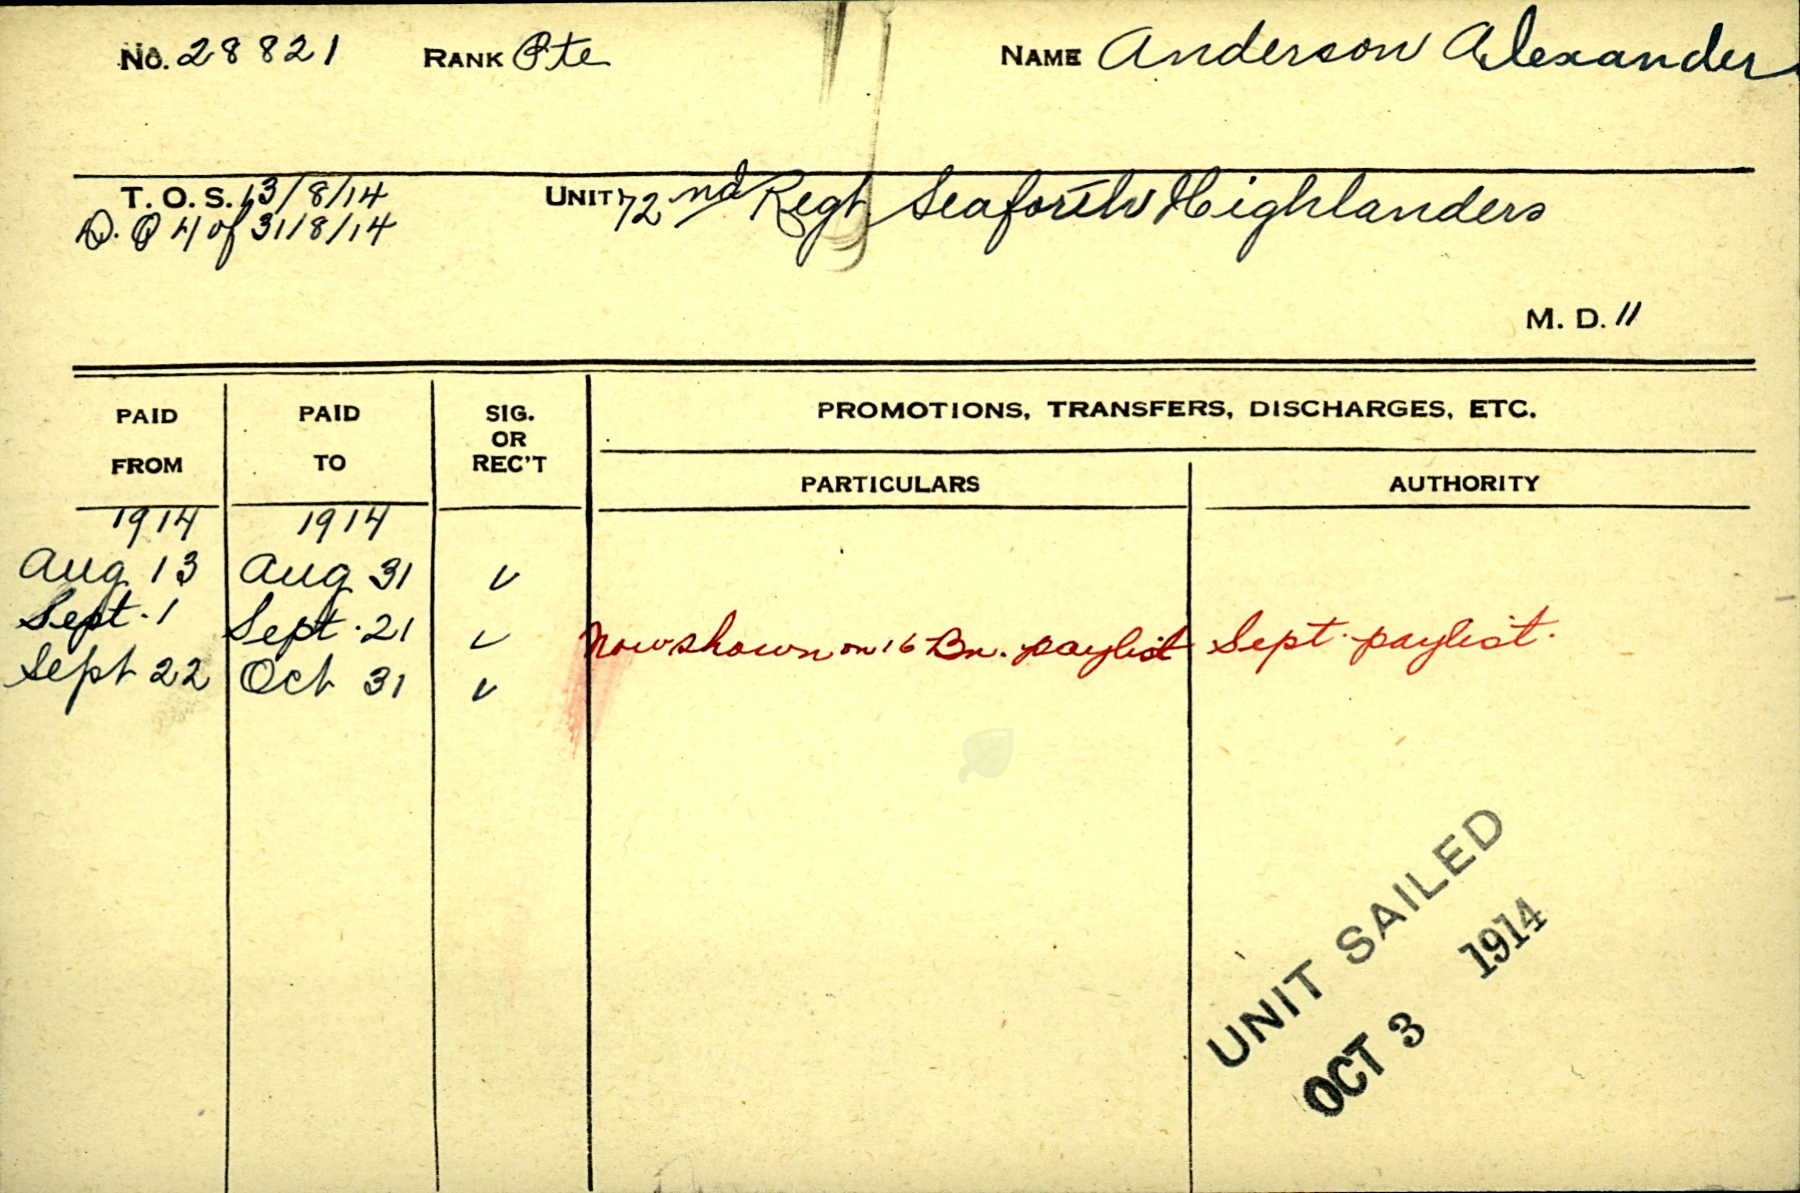 No. 28821 RANK Pte NAME Anderson Alexander
T. O. S. 13/8/14 UNIT 72nd Regt Seaforth Highlanders
D. O 4 of 31/8/14
M. D. 11
PAID FROM PAID TO SIG. OR REC'T PROMOTIONS, TRANSFERS, DISCHARGES, ETC.
PARTICULARS AUTHORITY
1914 1914
Aug 13 Aug 31 ✓
Sept. 1 Sept. 21 ✓ Now shown on 16 Bn. paylist Sept. paylist.
Sept 22 Oct 31 ✓
UNIT SAILED
OCT 3 1914